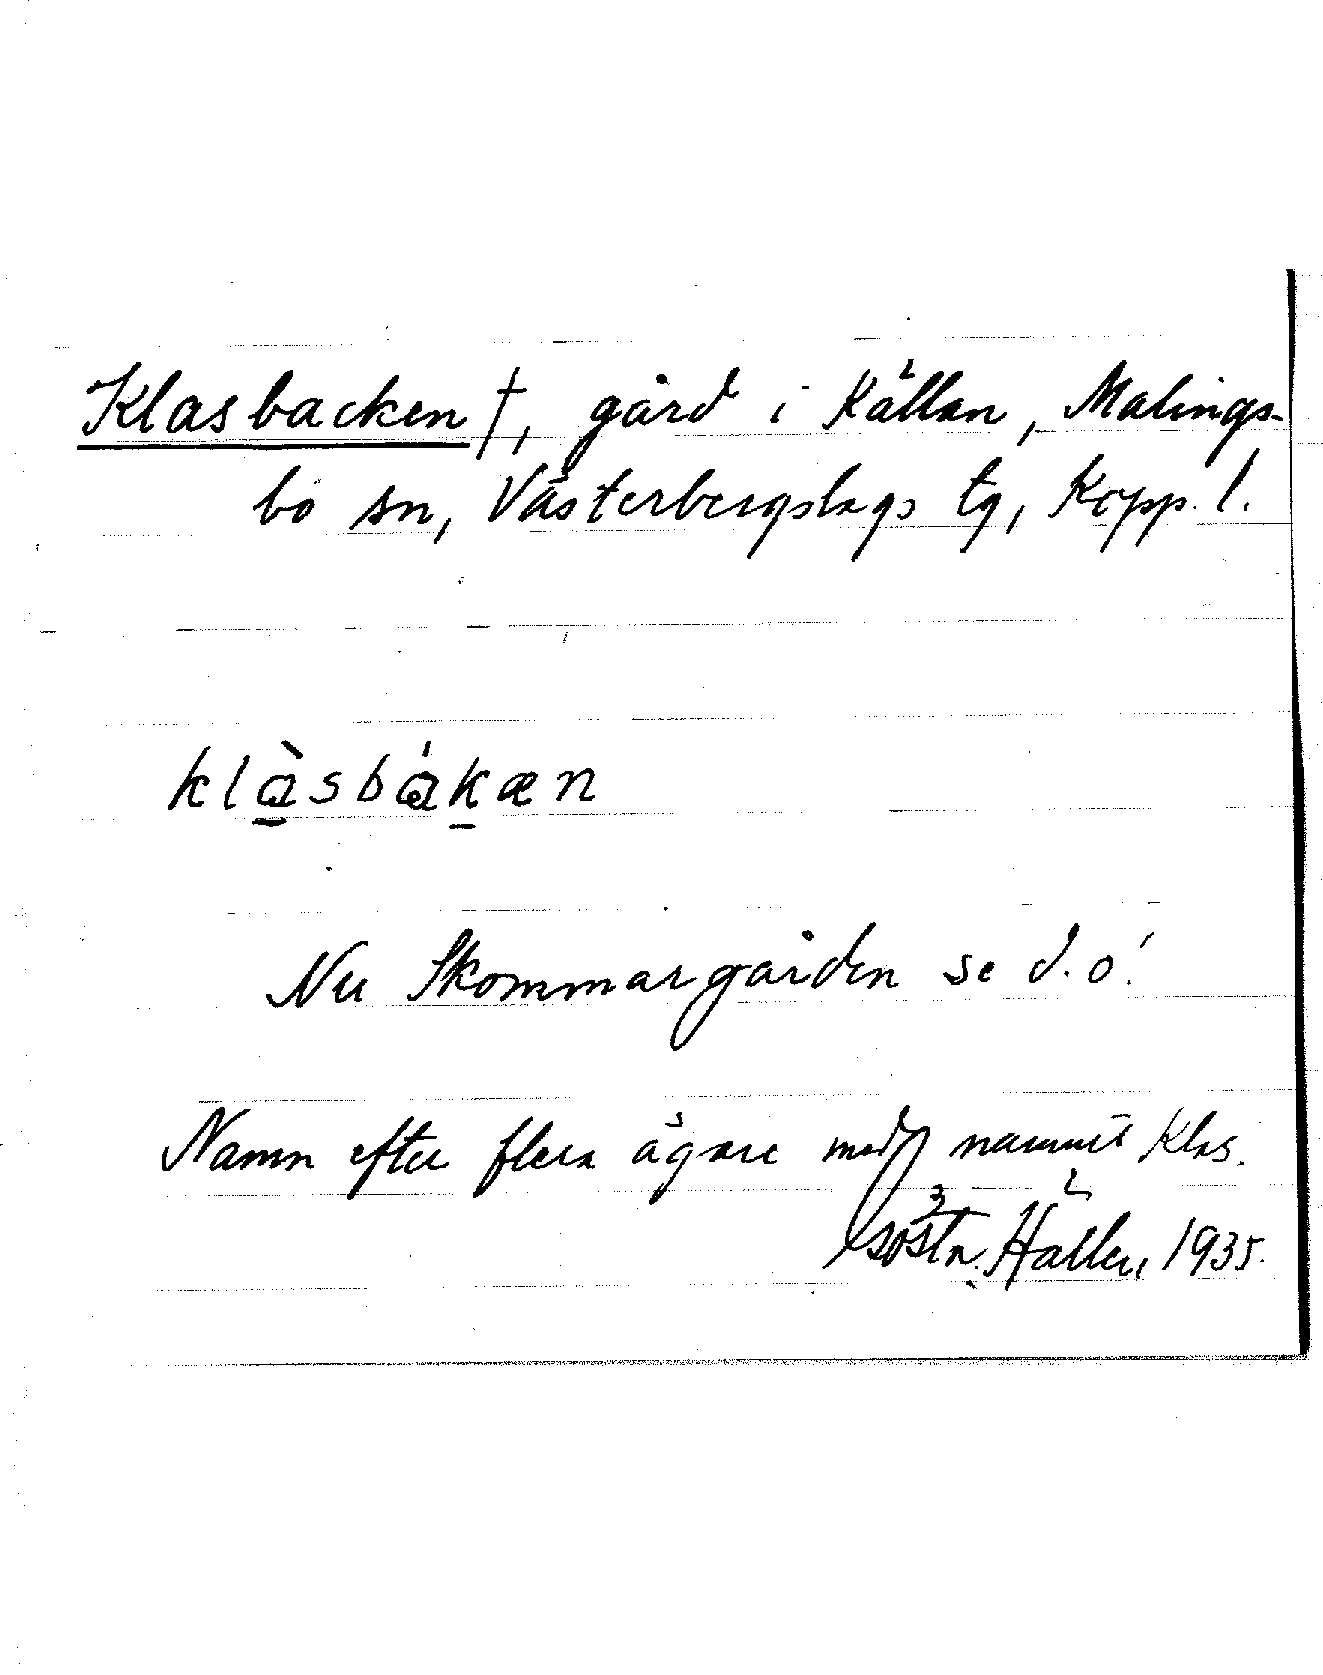 Klasbacken †, gård i Källan, Malings-
bo sn, Västerbergslags tg, Kopp. l.
klàsbákæn
Nu Skommargården se d. o!
Namn efter flera ägare med namnet Klas.
Gösta Hallen, 1935.